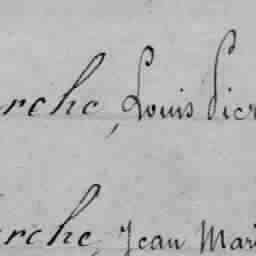 rche, Louis Pier
rche, Jean Mari